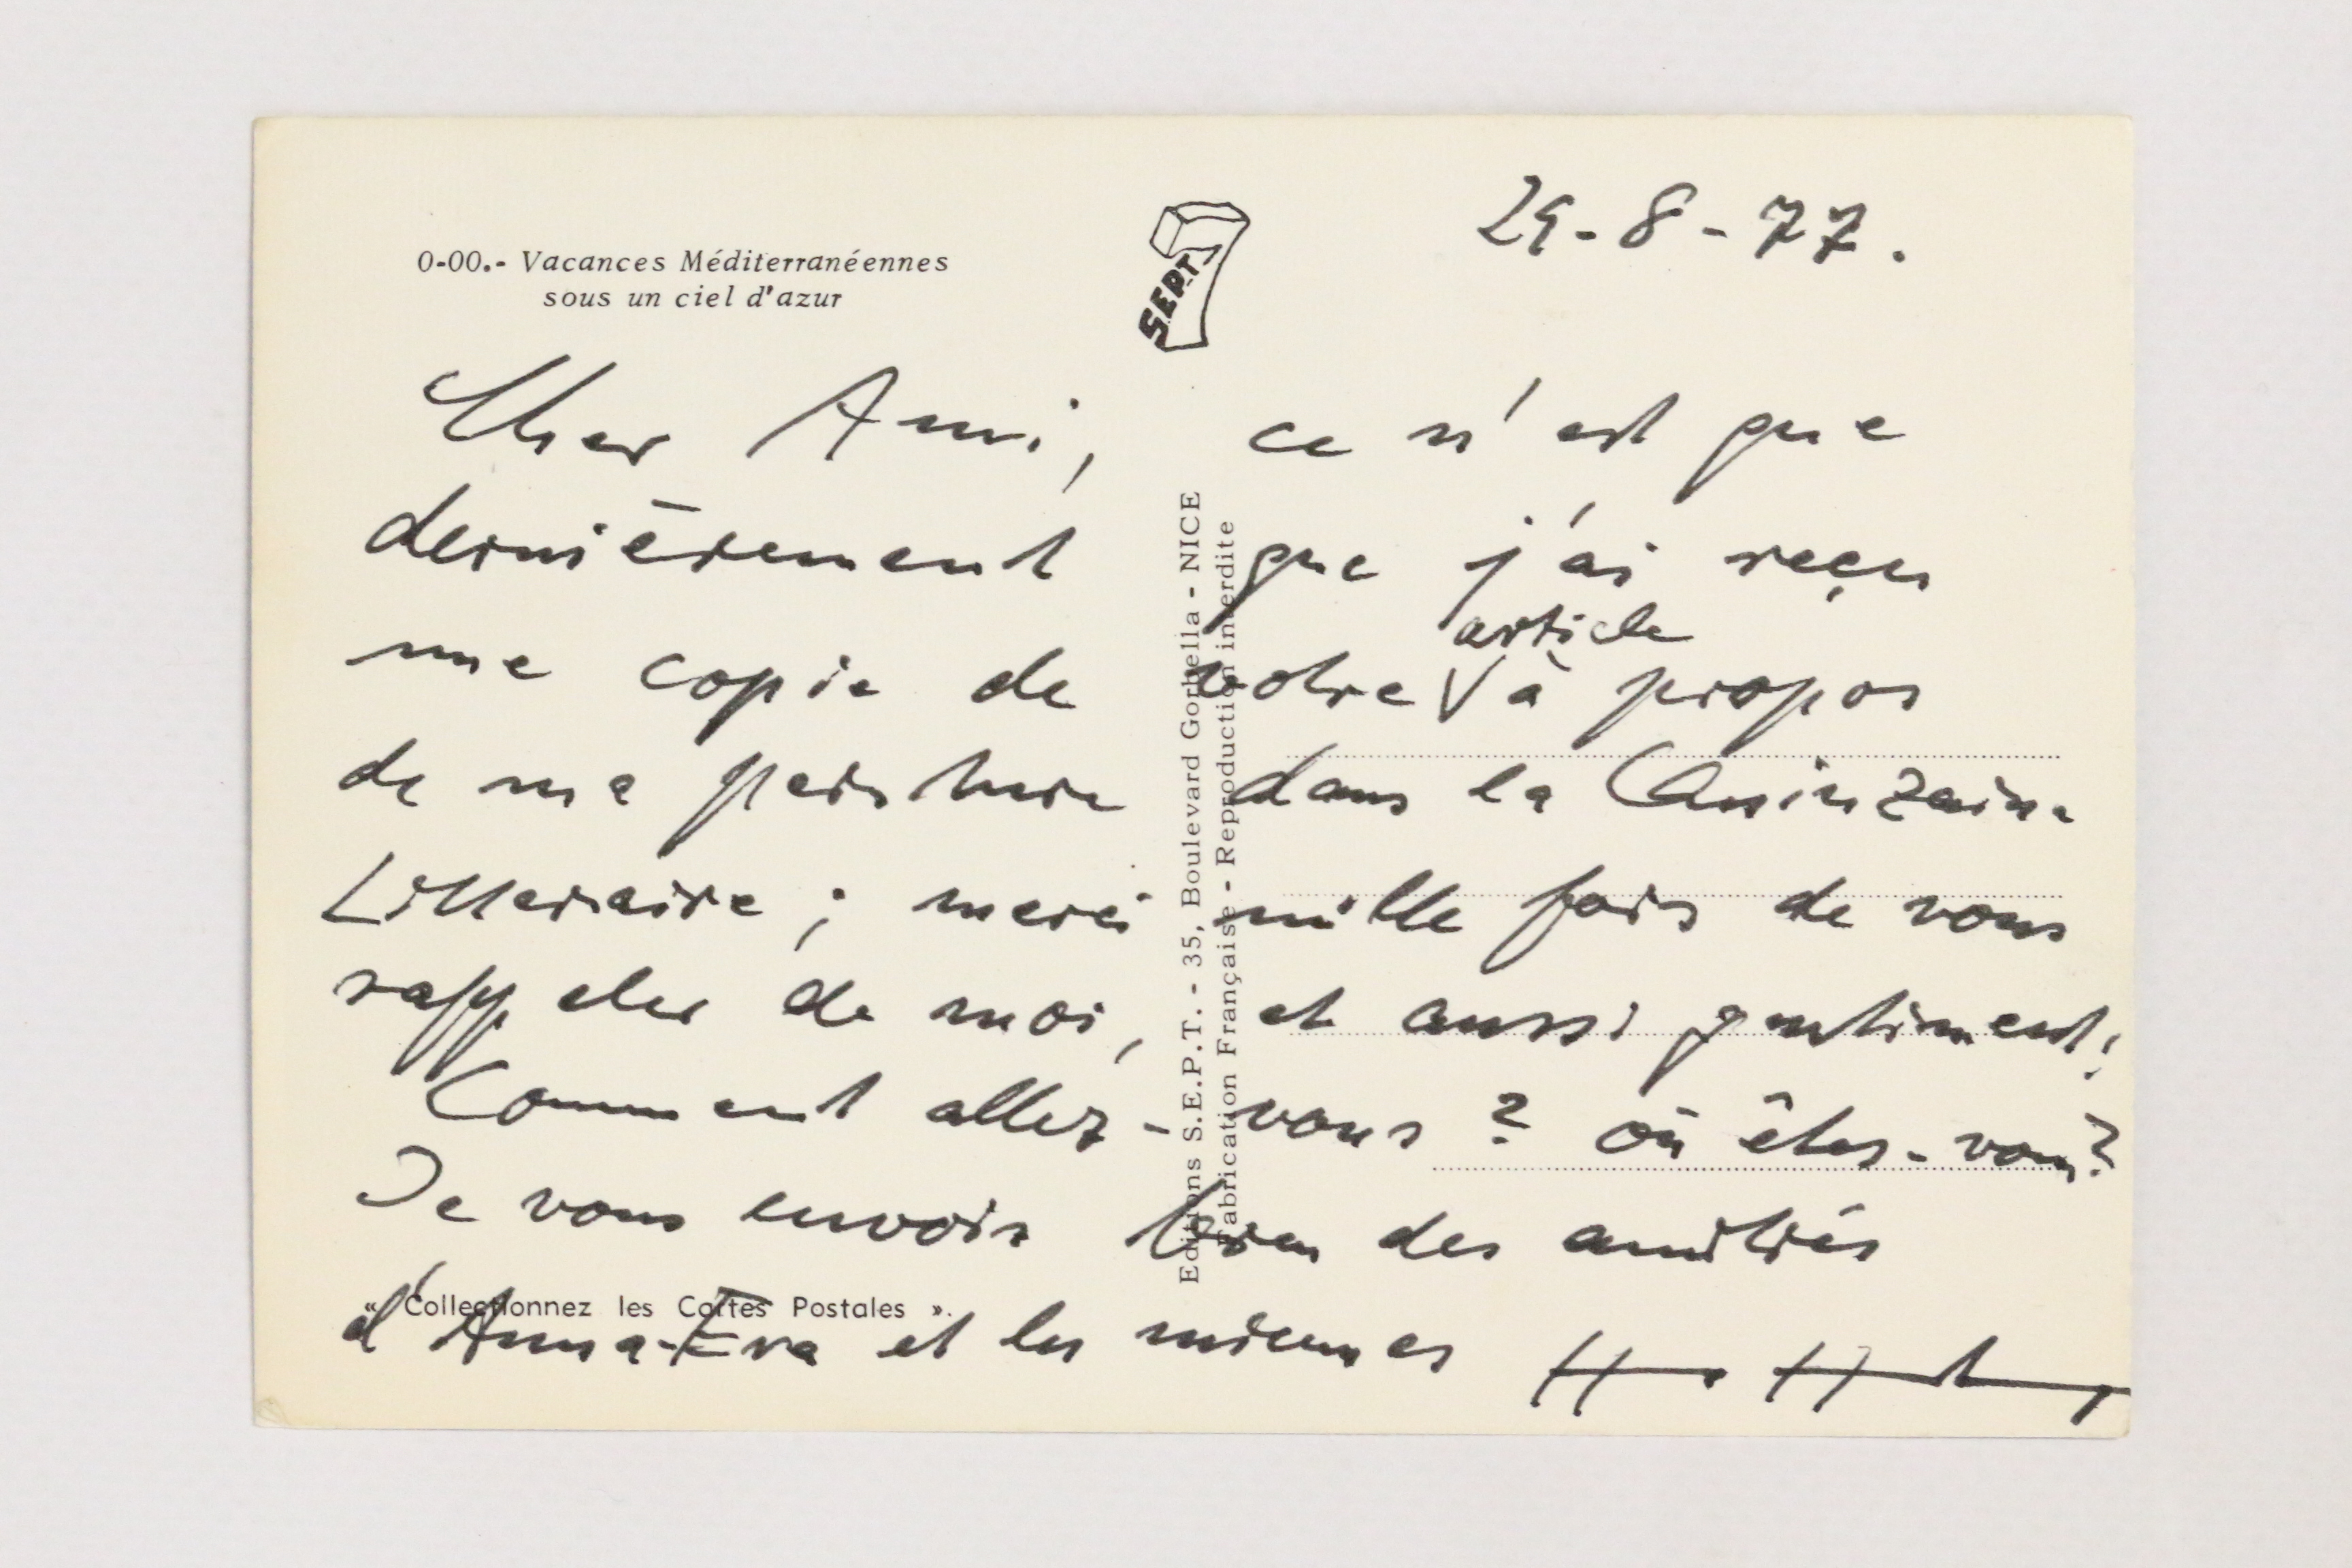 29-8-77.
0-00.- Vacances Méditerranéennes
sous un ciel d'azur
SEPT
Cher Ami, ce n'est que
dernièrement que j'ai reçu
article
une copie de votre √ à propos
de ma peinture dans la Quinzaine
Litteraire ; merci mille fois de vous
rappeler de moi, et aussi gentiment!
Comment allez-vous ? où êtes-vous?
Je vous envois bien des amitiés
d'Anna-Eva et les miennes
« Collectionnez les Cartes Postales ».
Editions S.E.P.T. - 35, Boulevard Gorbella - NICE
Fabrication Française - Reproduction interdite